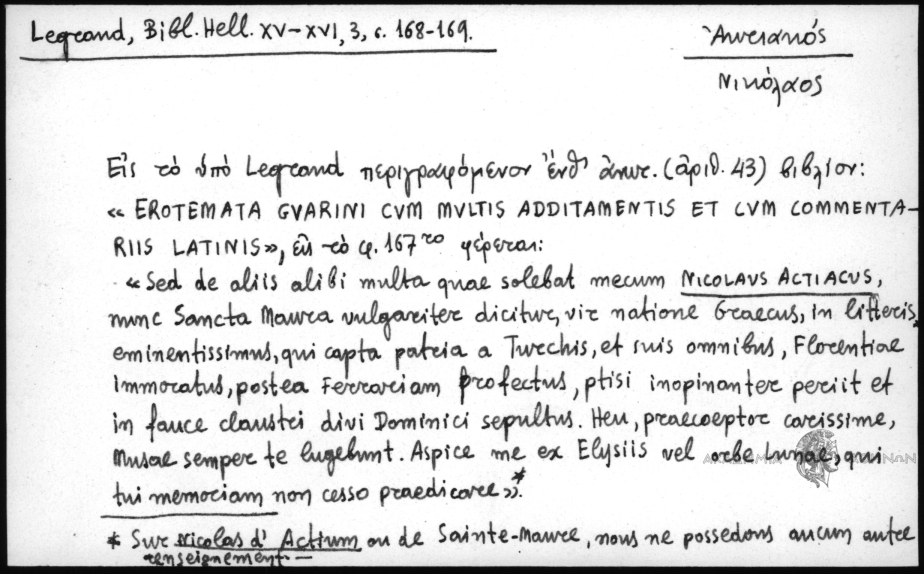 Legrand, Bibl. Hell. XV–XVI, 3, σ. 168-169.
Ἀκτιανός
Νικόλαος
Εἰς τὸ ὑπὸ Legrand περιγραφόμενον ἐνθ' ἀνωτ. (ἀριθ. 43) βιβλίον:
« EROTEMATA GVARINI CVM MVLTIS ADDITAMENTIS ET CVM COMMENTA–
RIIS LATINIS», εἰς τὸ φ. 167 το φέρεται:
«Sed de aliis alibi multa quae solebat mecum NICOLAVS ACTIACUS,
nunc Sancta Maura vulgariter dicitur, vir natione Graecus, in litteris
eminentissimus, qui capta patria a Turchis, et suis omnibus, Florentiae
immoratus, postea Ferrariam profectus, ptisi inopinanter periit et
in fauce claustri divi Dominici sepultus. Heu, praecoeptor carissime,
Musae semper te lugebunt. Aspice me ex Elysiis vel orbe Lunae, qui
tui memoriam non cesso praedicare».*
* Sur Nicolas d' Actium ou de Sainte-Maure, nous ne possedons aucun autre
renseignement.—